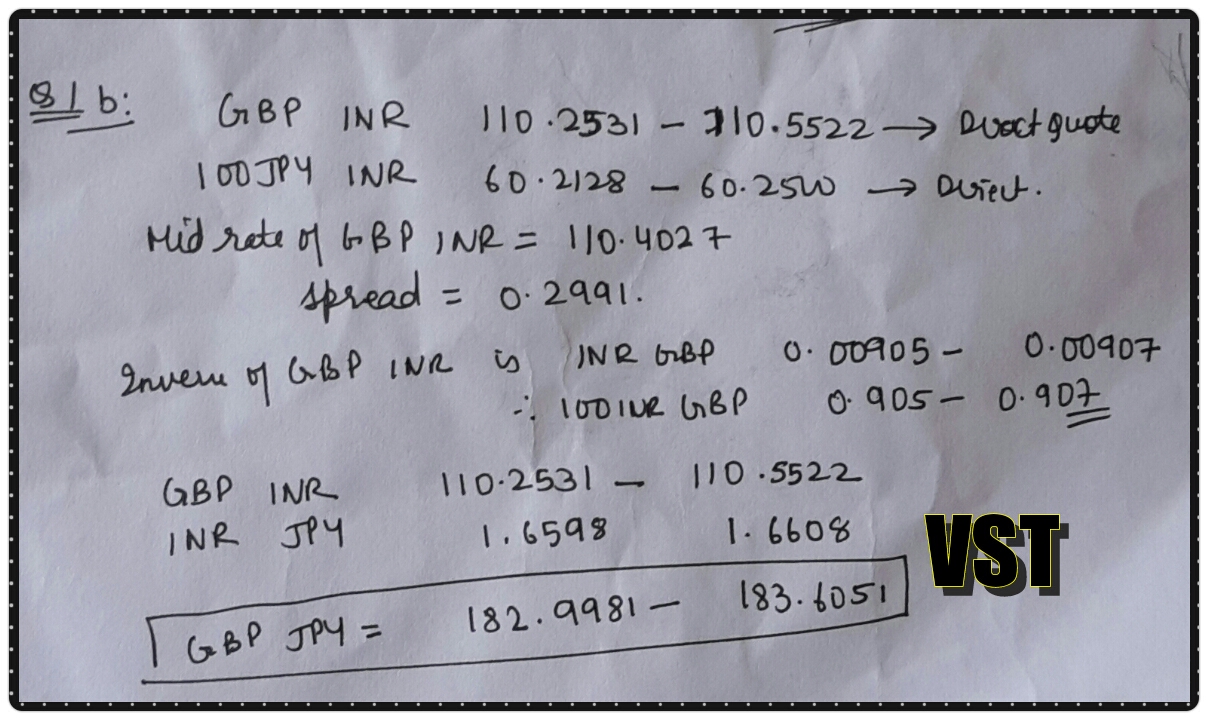 Q1 b: GBP INR 110.2531 – 110.5522 → Direct quote
100 JPY INR 60.2128 – 60.2500 → Direct.
Mid rate of GBP INR = 110.4027
spread = 0.2991.
Inverse of GBP INR is INR GBP 0.00905 – 0.00907
∴ 100 INR GBP 0.905 – 0.907
GBP INR 110.2531 – 110.5522
INR JPY 1.6598 1.6608
VST
GBP JPY = 182.9981 – 183.6051